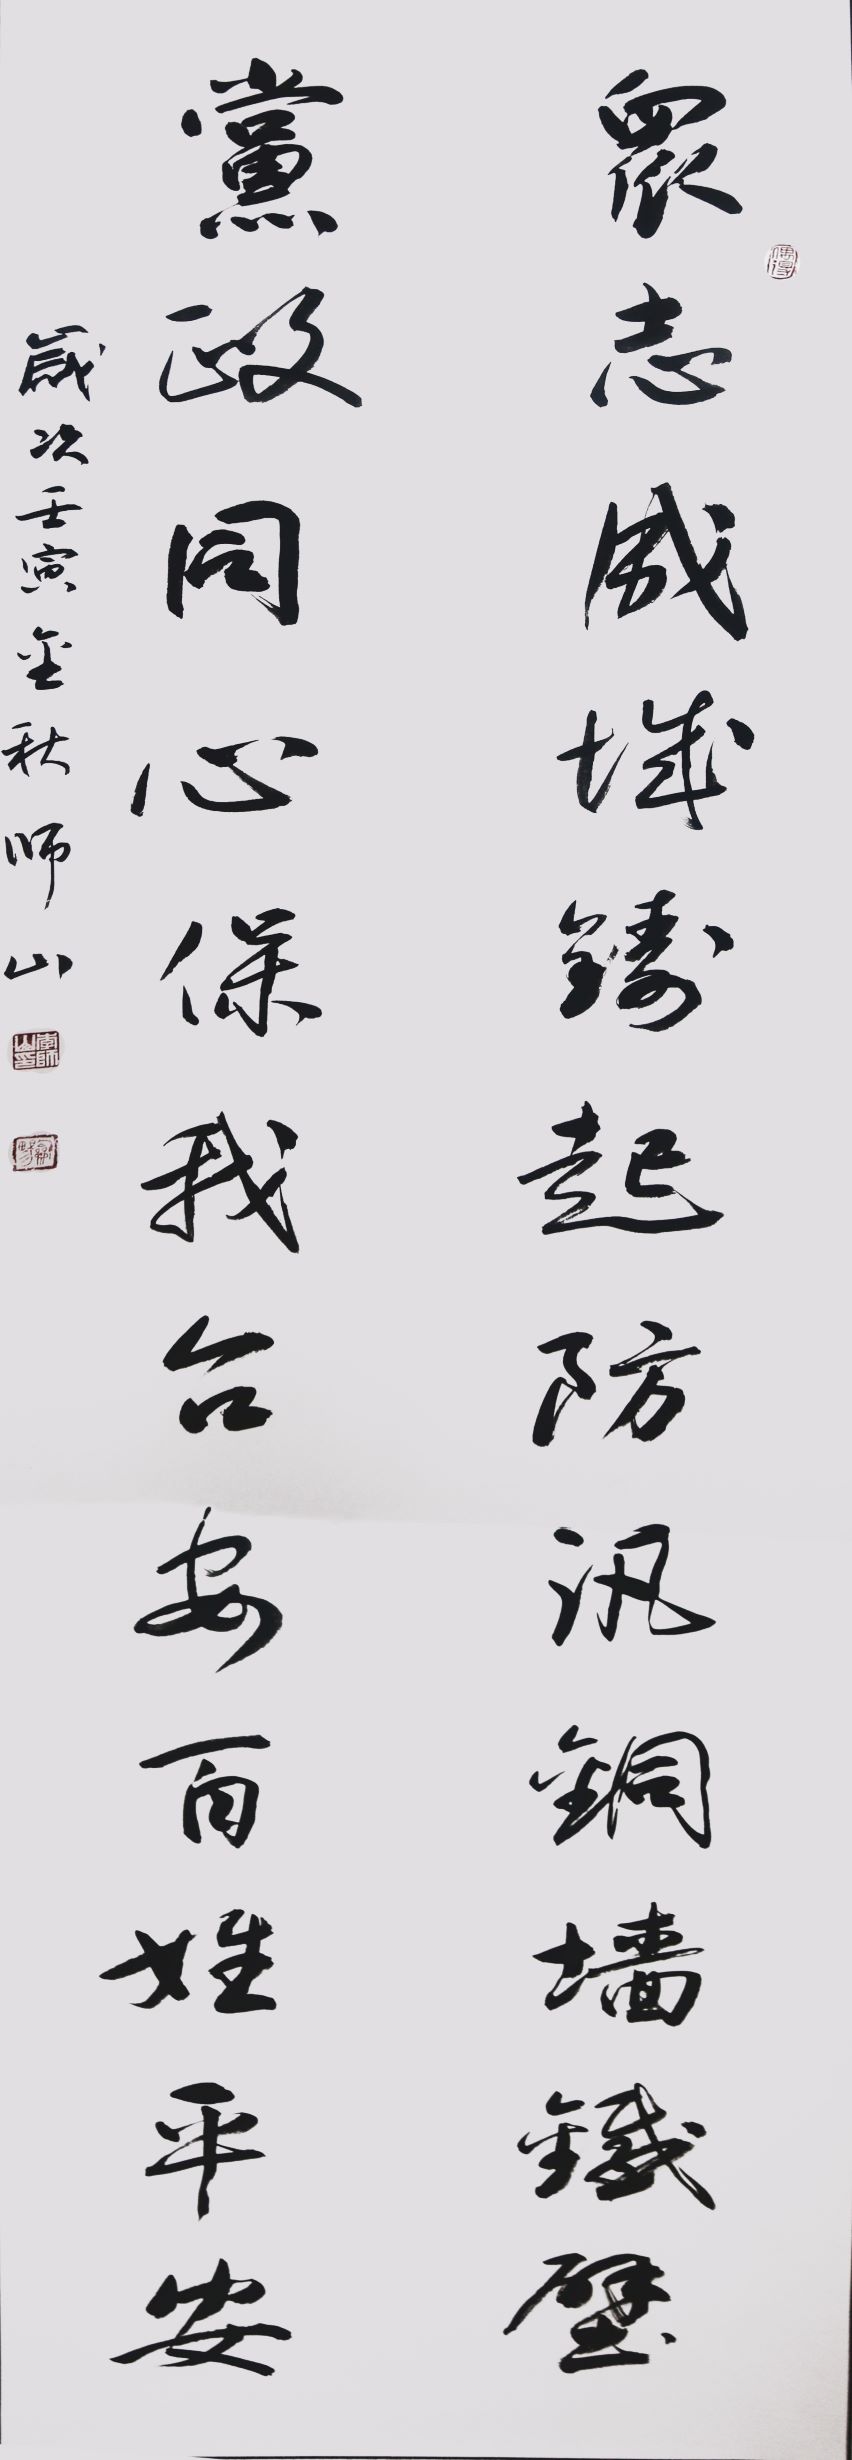 眾志成城鑄起防汛銅墻鐵壁
黨政同心保我台安百姓平安
歲次壬寅金秋師山